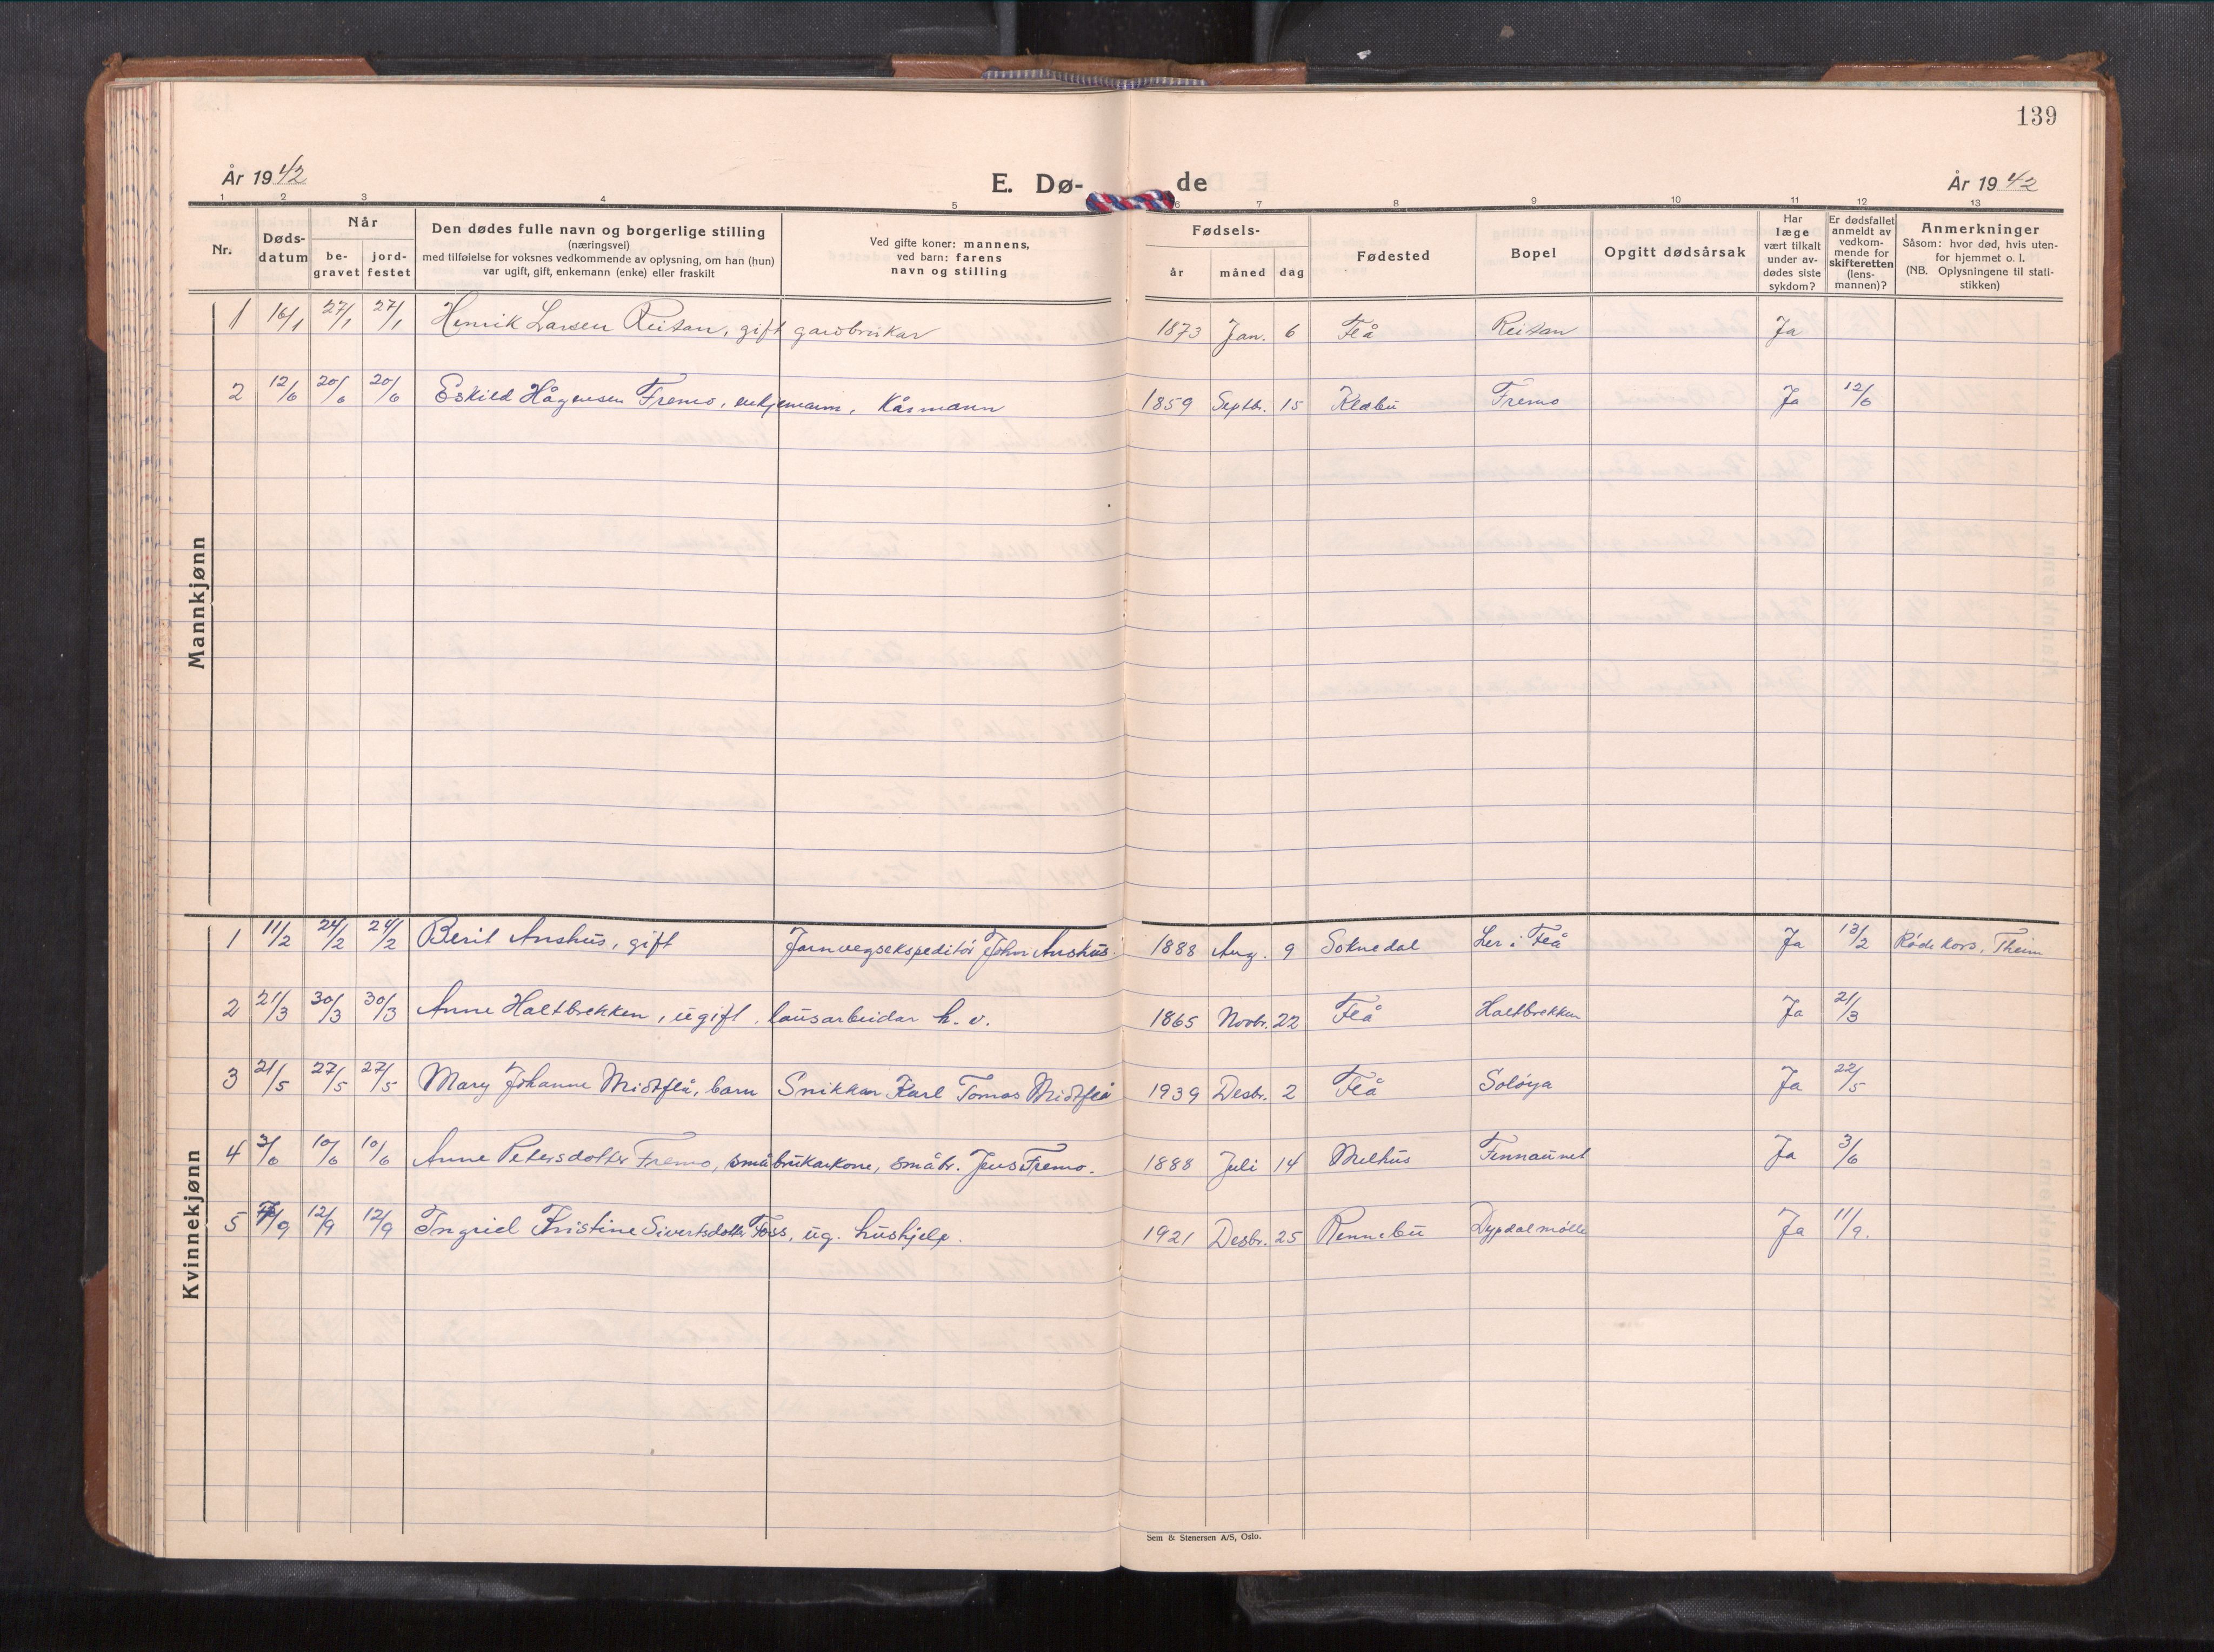 139
År 1942
E. Dø-
de
År 1942
1 2 3 4 5 6 7 8 9 10 11 12 13
Nr.
Døds-
datum
Når
be-
gravet
jord-
festet
Den dødes fulle navn og borgerlige stilling
(næringsvei)
med tilføielse for voksnes vedkommende av oplysning, om han (hun)
var ugift, gift, enkemann (enke) eller fraskilt
Ved gifte koner: mannens,
ved barn: farens
navn og stilling
Fødsels-
år måned dag
Fødested
Bopel
Opgitt dødsårsak
Har
læge
vært tilkalt
under av-
dødes siste
sykdom?
Er dødsfallet
anmeldt av
vedkom-
mende for
skifteretten
(lens-
mannen)?
Anmerkninger
Såsom: hvor død, hvis uten-
for hjemmet o. l.
(NB. Oplysningene til stati-
stikken)
Mannkjønn
1 16/1 27/1 27/1 Henrik Larsen Reitan, gift gardbrukar 1873 Jan. 6 Flå Reitan Ja
2 12/6 20/6 20/6 Eskild Hågensen Fremo, enkjemann, Kårmann 1859 Septbr. 15 Klæbu Fremo Ja 12/6
Kvinnekjønn
1 11/2 24/2 24/2 Berit Anshus, gift Jarnvegsekspeditör John Anshus. 1888 Aug. 9 Soknedal Ler i Flå Ja 13/2 Røde kors, Theim
2 21/3 30/3 30/3 Anne Haltbrekken, ugift, lausarbeidar h. v. 1865 Novbr. 22 Flå Haltbrekken Ja 21/3
3 21/5 27/5 27/5 Mary Johanne Midtflå, barn Snikkar Karl Tomas Midtflå 1939 Desbr. 2 Flå Soløya Ja 22/5
4 3/6 10/6 10/6 Anne Petersdotter Fremo, småbrukarkone, småbr. Jens Fremo. 1888 Juli 14 Melhus Fennaunet Ja 3/6
5 /9 12/9 12/9 Ingrid Kristine Sivertsdotter Foss, ug. hushjelp. 1921 Desbr. 25 Rennebu Dypdalmølle Ja 11/9.
Sem & Stenersen A/S, Oslo.